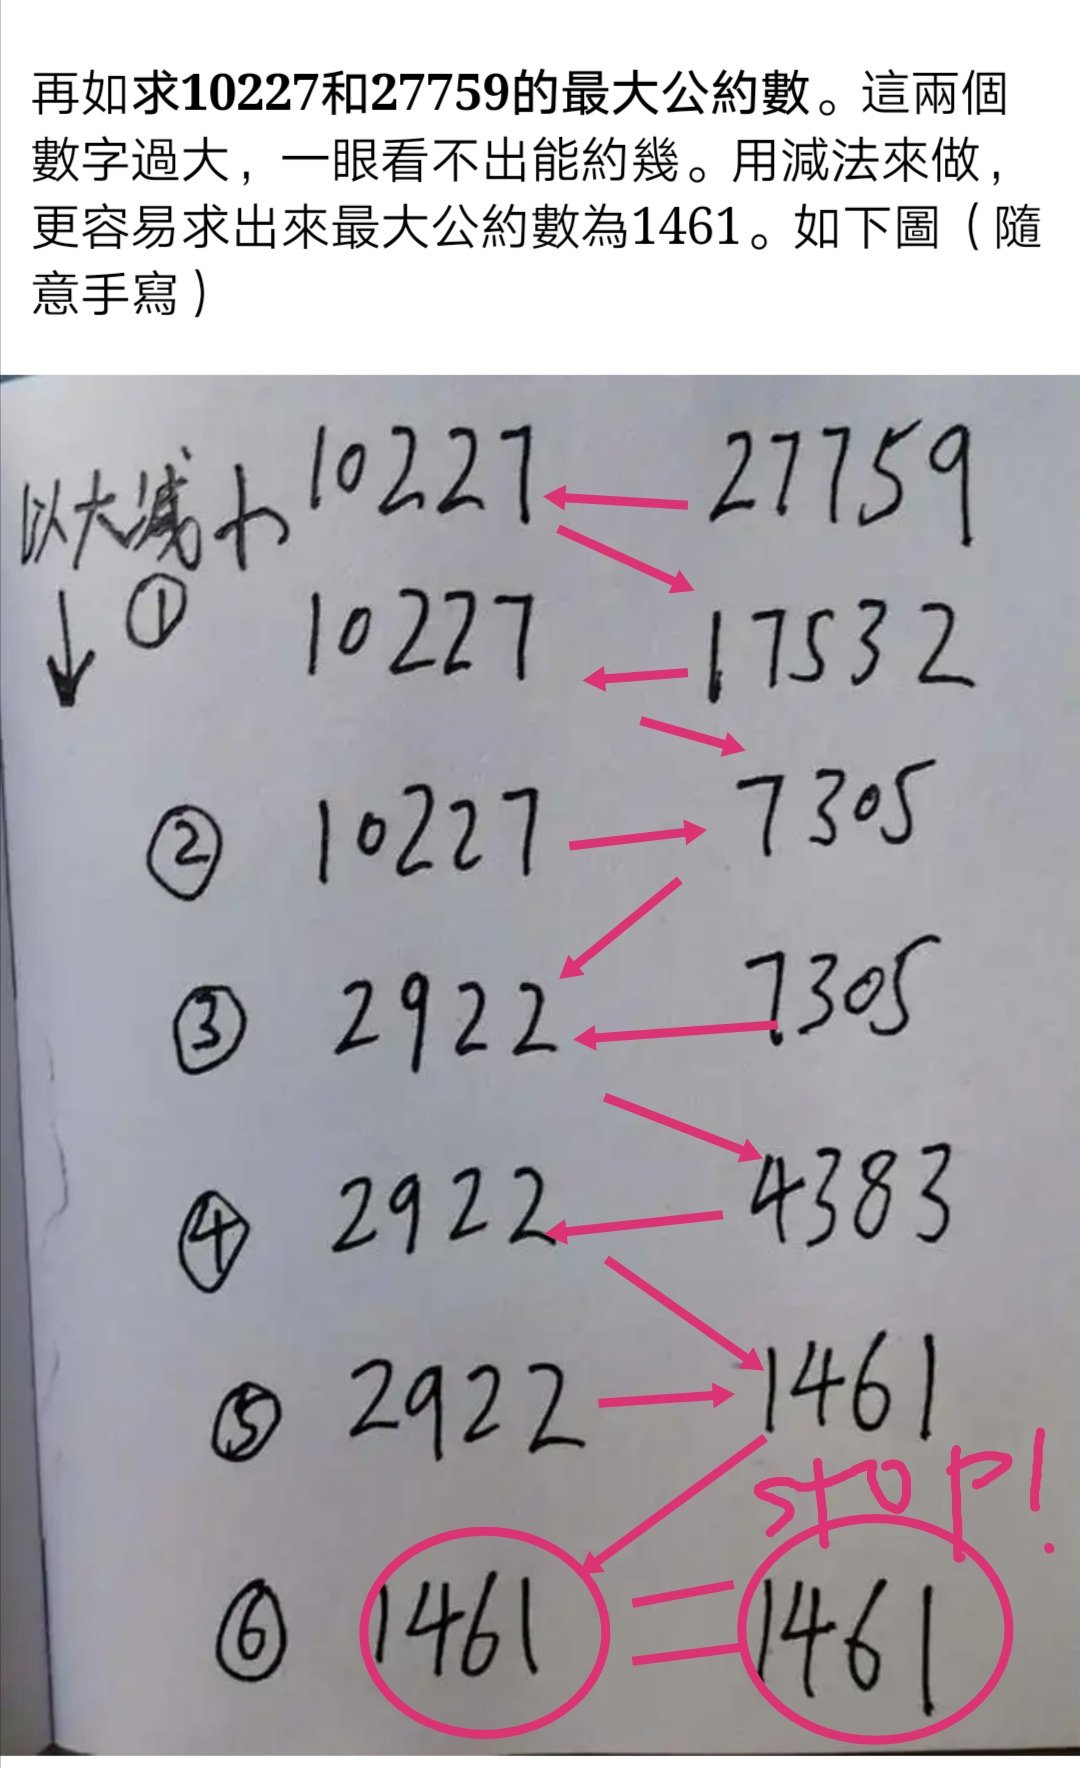 再如求10227和27759的最大公約數。這兩個
數字過大，一眼看不出能約幾。用減法來做，
更容易求出來最大公約數為1461。如下圖（隨
意手寫）
以大减小 10227 27759
① 10227 17532
② 10227 7305
③ 2922 7305
④ 2922 4383
⑤ 2922 1461
STOP!
⑥ 1461 = 1461